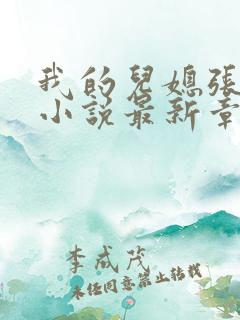 我的兒媳張
小說最新章
李成茂
未经同意禁止转载